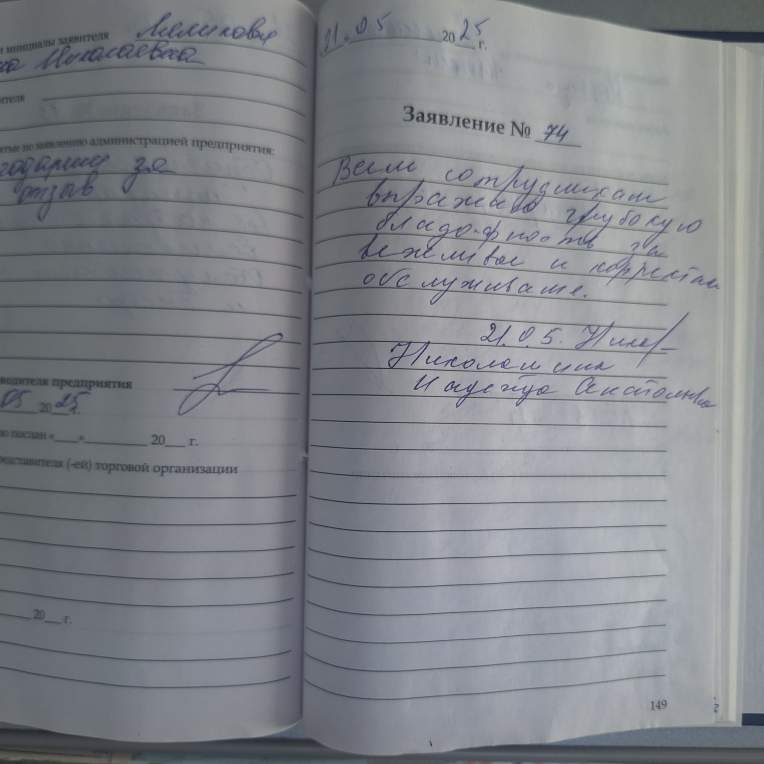 и инициалы заявителя Меликова
Николаевна
ителя
ятые по заявлению администрацией предприятия:
годарим за
отзыв
водителя предприятия
05 2025 г.
но послан «___»__________ 20___ г.
редставителя (-ей) торговой организации
20___ г.
21.05 2025 г.
Заявление № 74
Всем сотрудникам
выражаю глубокую
благодарность за
вежливое и корректн
обслуживание.
21.05.
Надежда Анатольевна
149